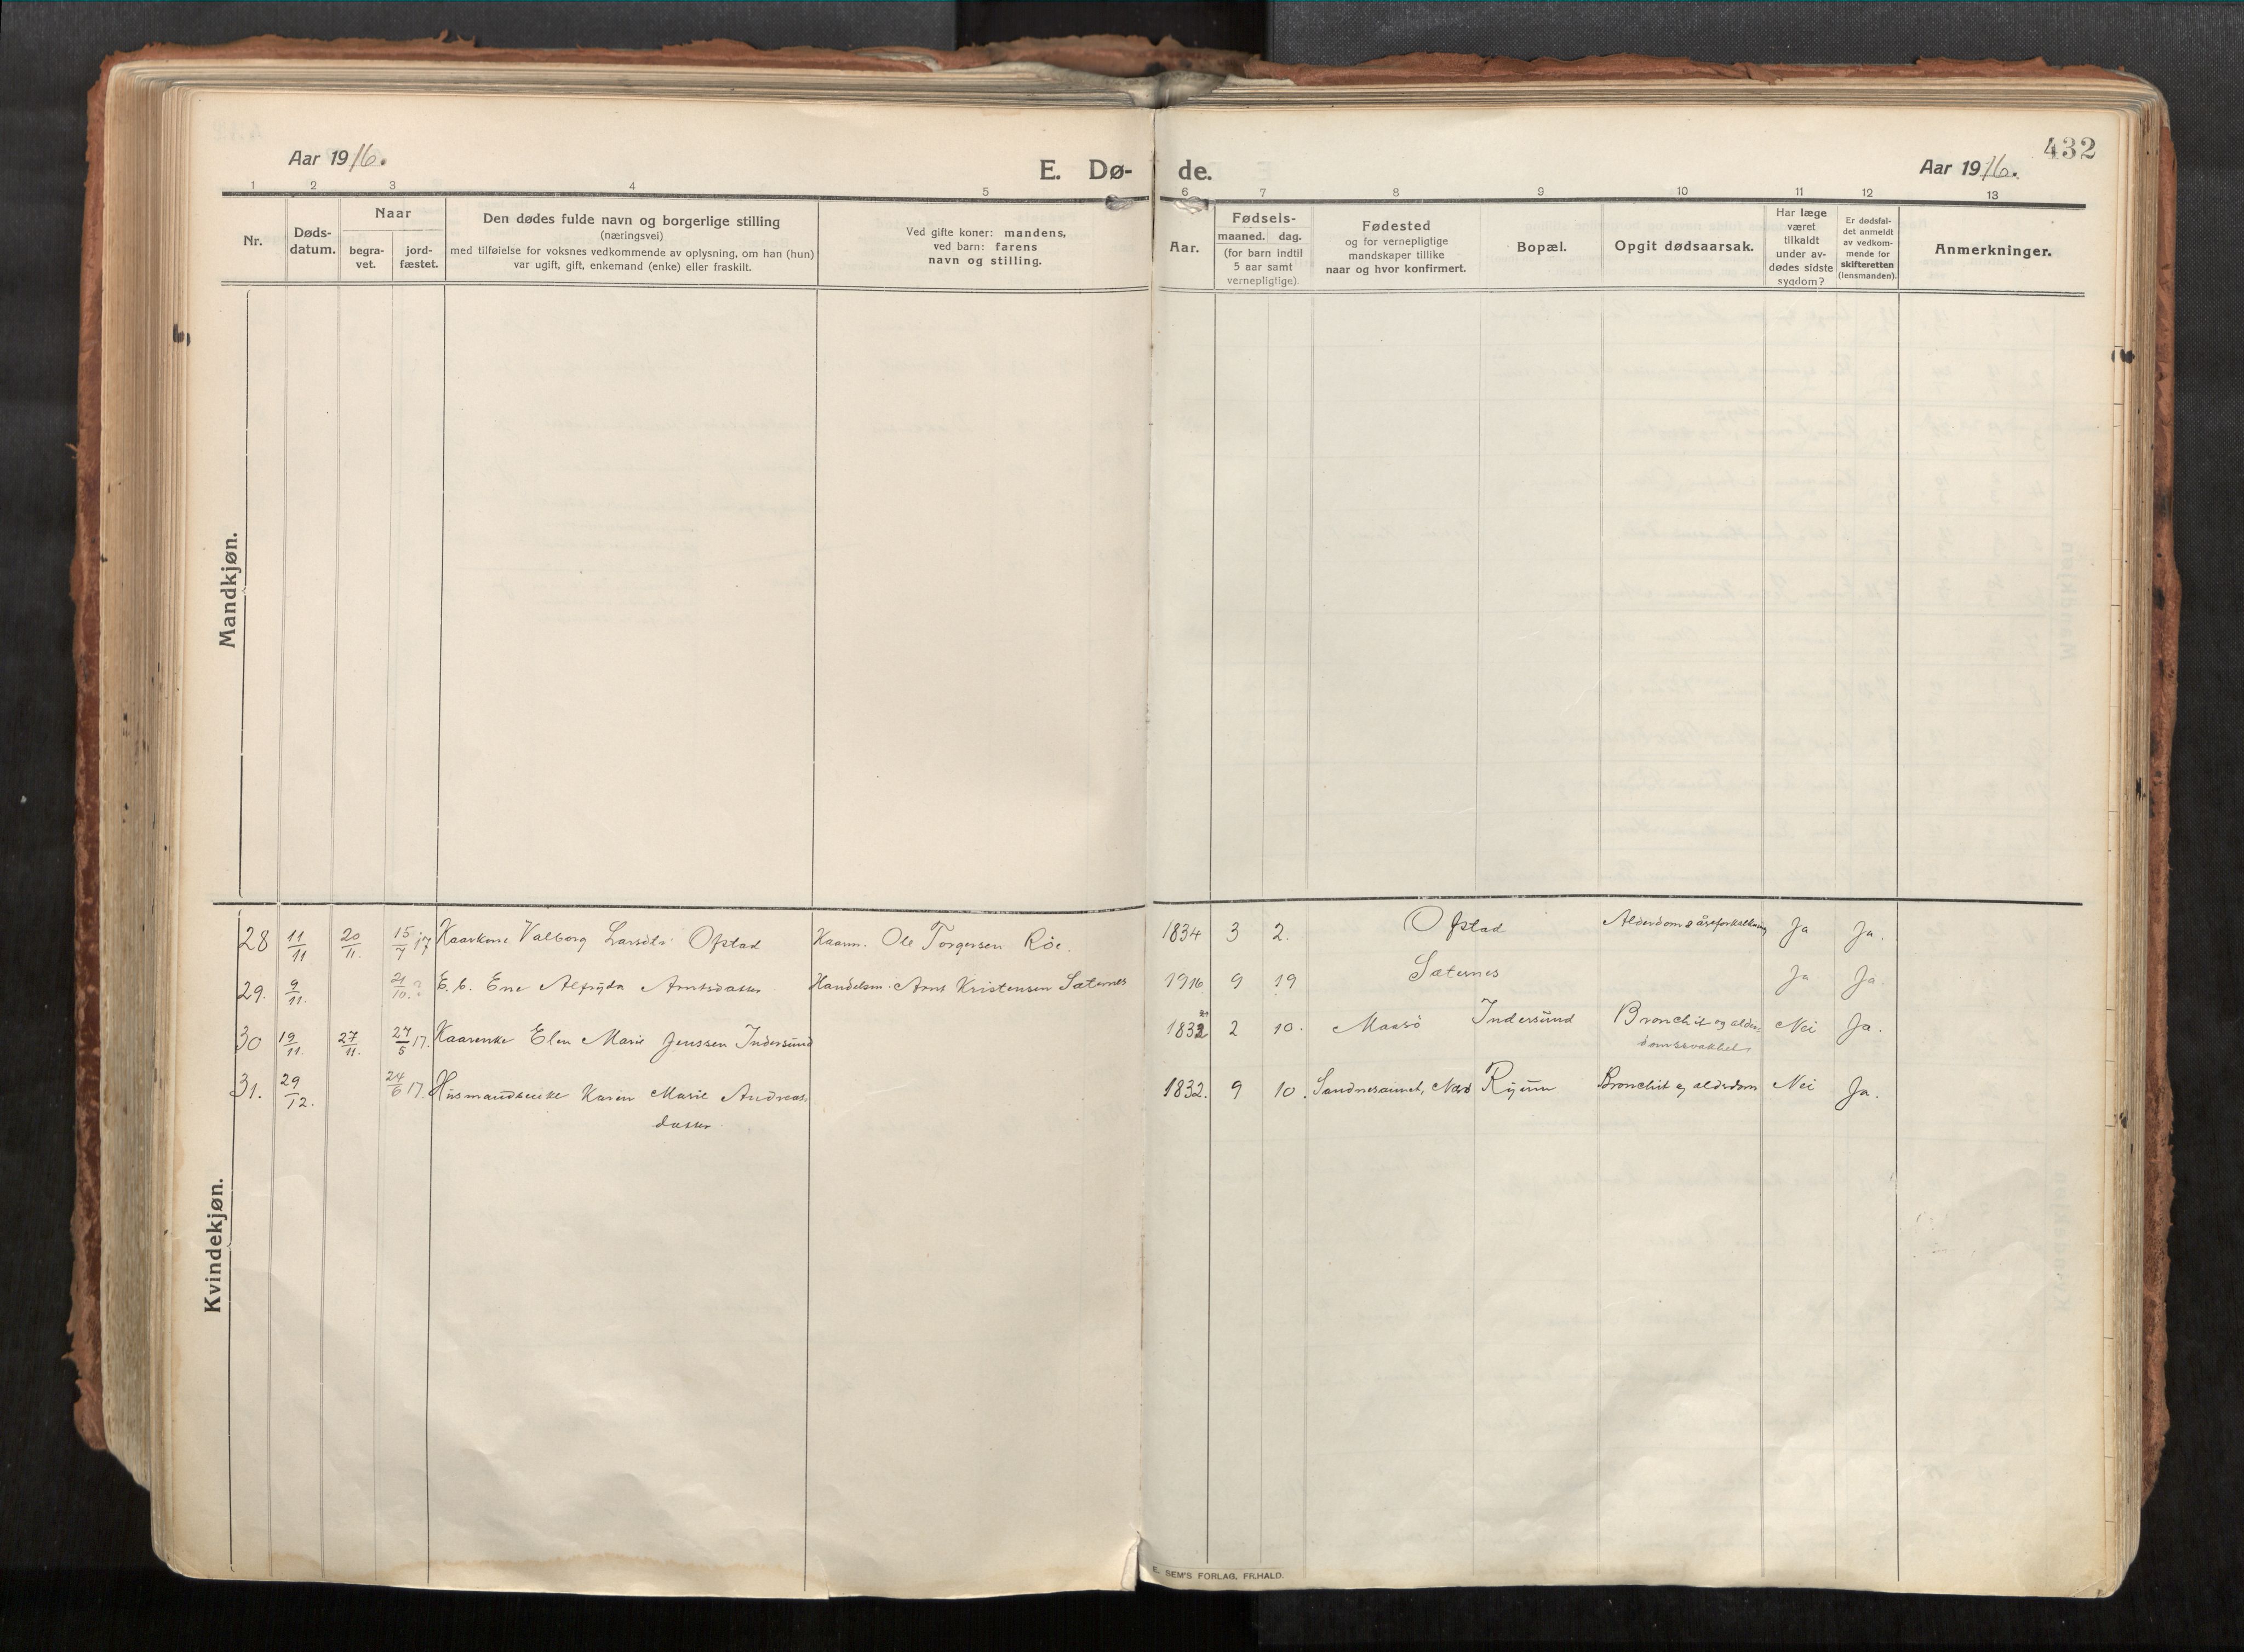 432
Aar 1916.
E. Dø-
de.
Aar 1916.
1 2 3 4 5 6 7 8 9 10 11 12 13
Nr.
Døds-
datum.
Naar
begra-
vet.
jord-
fæstet.
Den dødes fulde navn og borgerlige stilling
(næringsvei)
med tilføielse for voksnes vedkommende av oplysning, om han (hun)
var ugift, gift, enkemand (enke) eller fraskilt.
Ved gifte koner: mandens,
ved barn: farens
navn og stilling.
Aar.
Fødsels-
maaned. dag.
(for barn indtil
5 aar samt
vernepligtige)
Fødested
og for vernepligtige
mandskaper tillike
naar og hvor konfirmert.
Bopæl.
Opgit dødsaarsak.
Har læge
været
tilkaldt
under av-
dødes sidste
sygdom?
Er dødsfal-
det anmeldt
av vedkom-
mende for
skifteretten
(lensmanden).
Anmerkninger.
Mandkjøn.
Kvindekjøn.
28 11/11 20/11. 15/7 17 Kaarkone Valborg Larsdtr. Ofstad Kaarm. Ole Torgersen Röe. 1834 3 2. Ofstad Alderdom & åreforkalkning Ja Ja.
29. 9/11. E. b. Ene Alfrÿda Arntsdatter Handelsm. Arnt Kristensen Sæternes 1916 9 19 Sæternes Ja Ja
30 19/11. 27/11. 27/5 17. Kaarenke Elen Marie Jenssen Indersund 1832 2 10. Maasö Indersund Bronchit og alder-
domssvakhet Nei Ja.
31. 29/12. 24/6 17. Husmandsenke Karen Marie Andreas-
datter 1832. 9 10. Sandnesaunet, Nærö Ryum Bronchit og alderdom Nei Ja.
E. SEM'S FORLAG, FR.HALD.